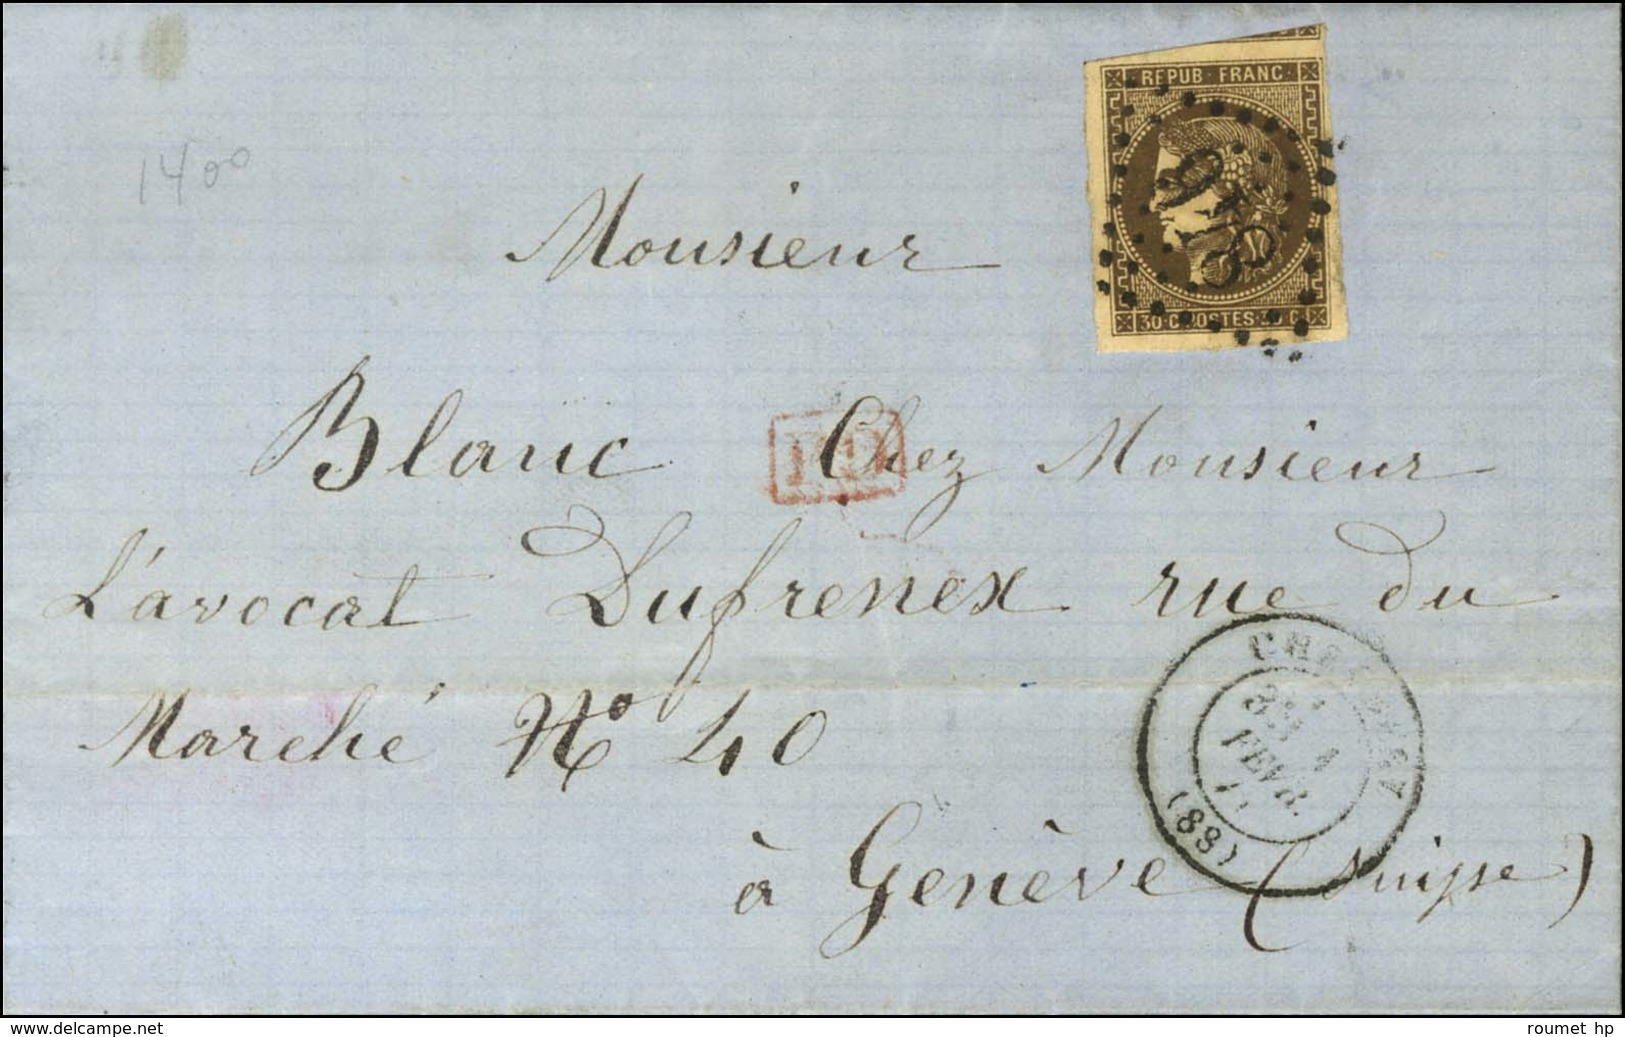 1400
REPUB · FRANC
30 · C · POSTES · 30 C
Monsieur
Blanc Chez Monsieur
PD
L'avocat Dufrenex rue du
Marché N° 40
FEVR.
(88)
à Genève (Suisse)
www.delcampe.net
roumet hp